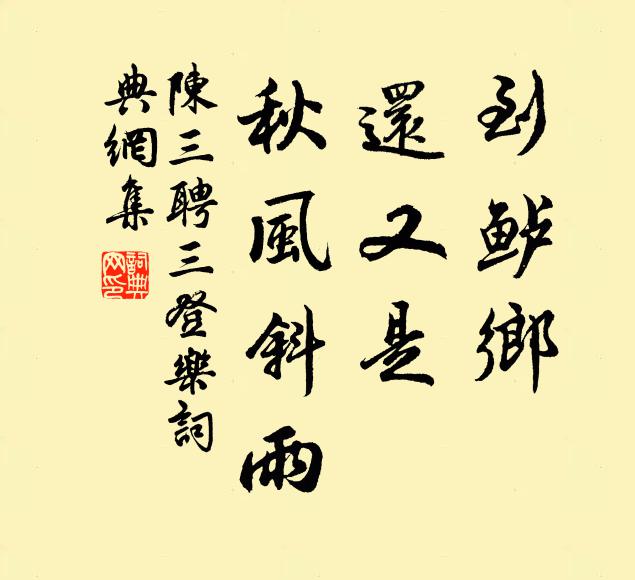 到鲈鄉
還又是
秋風斜雨
陳三聘三登樂詞
典網集
詞典網印